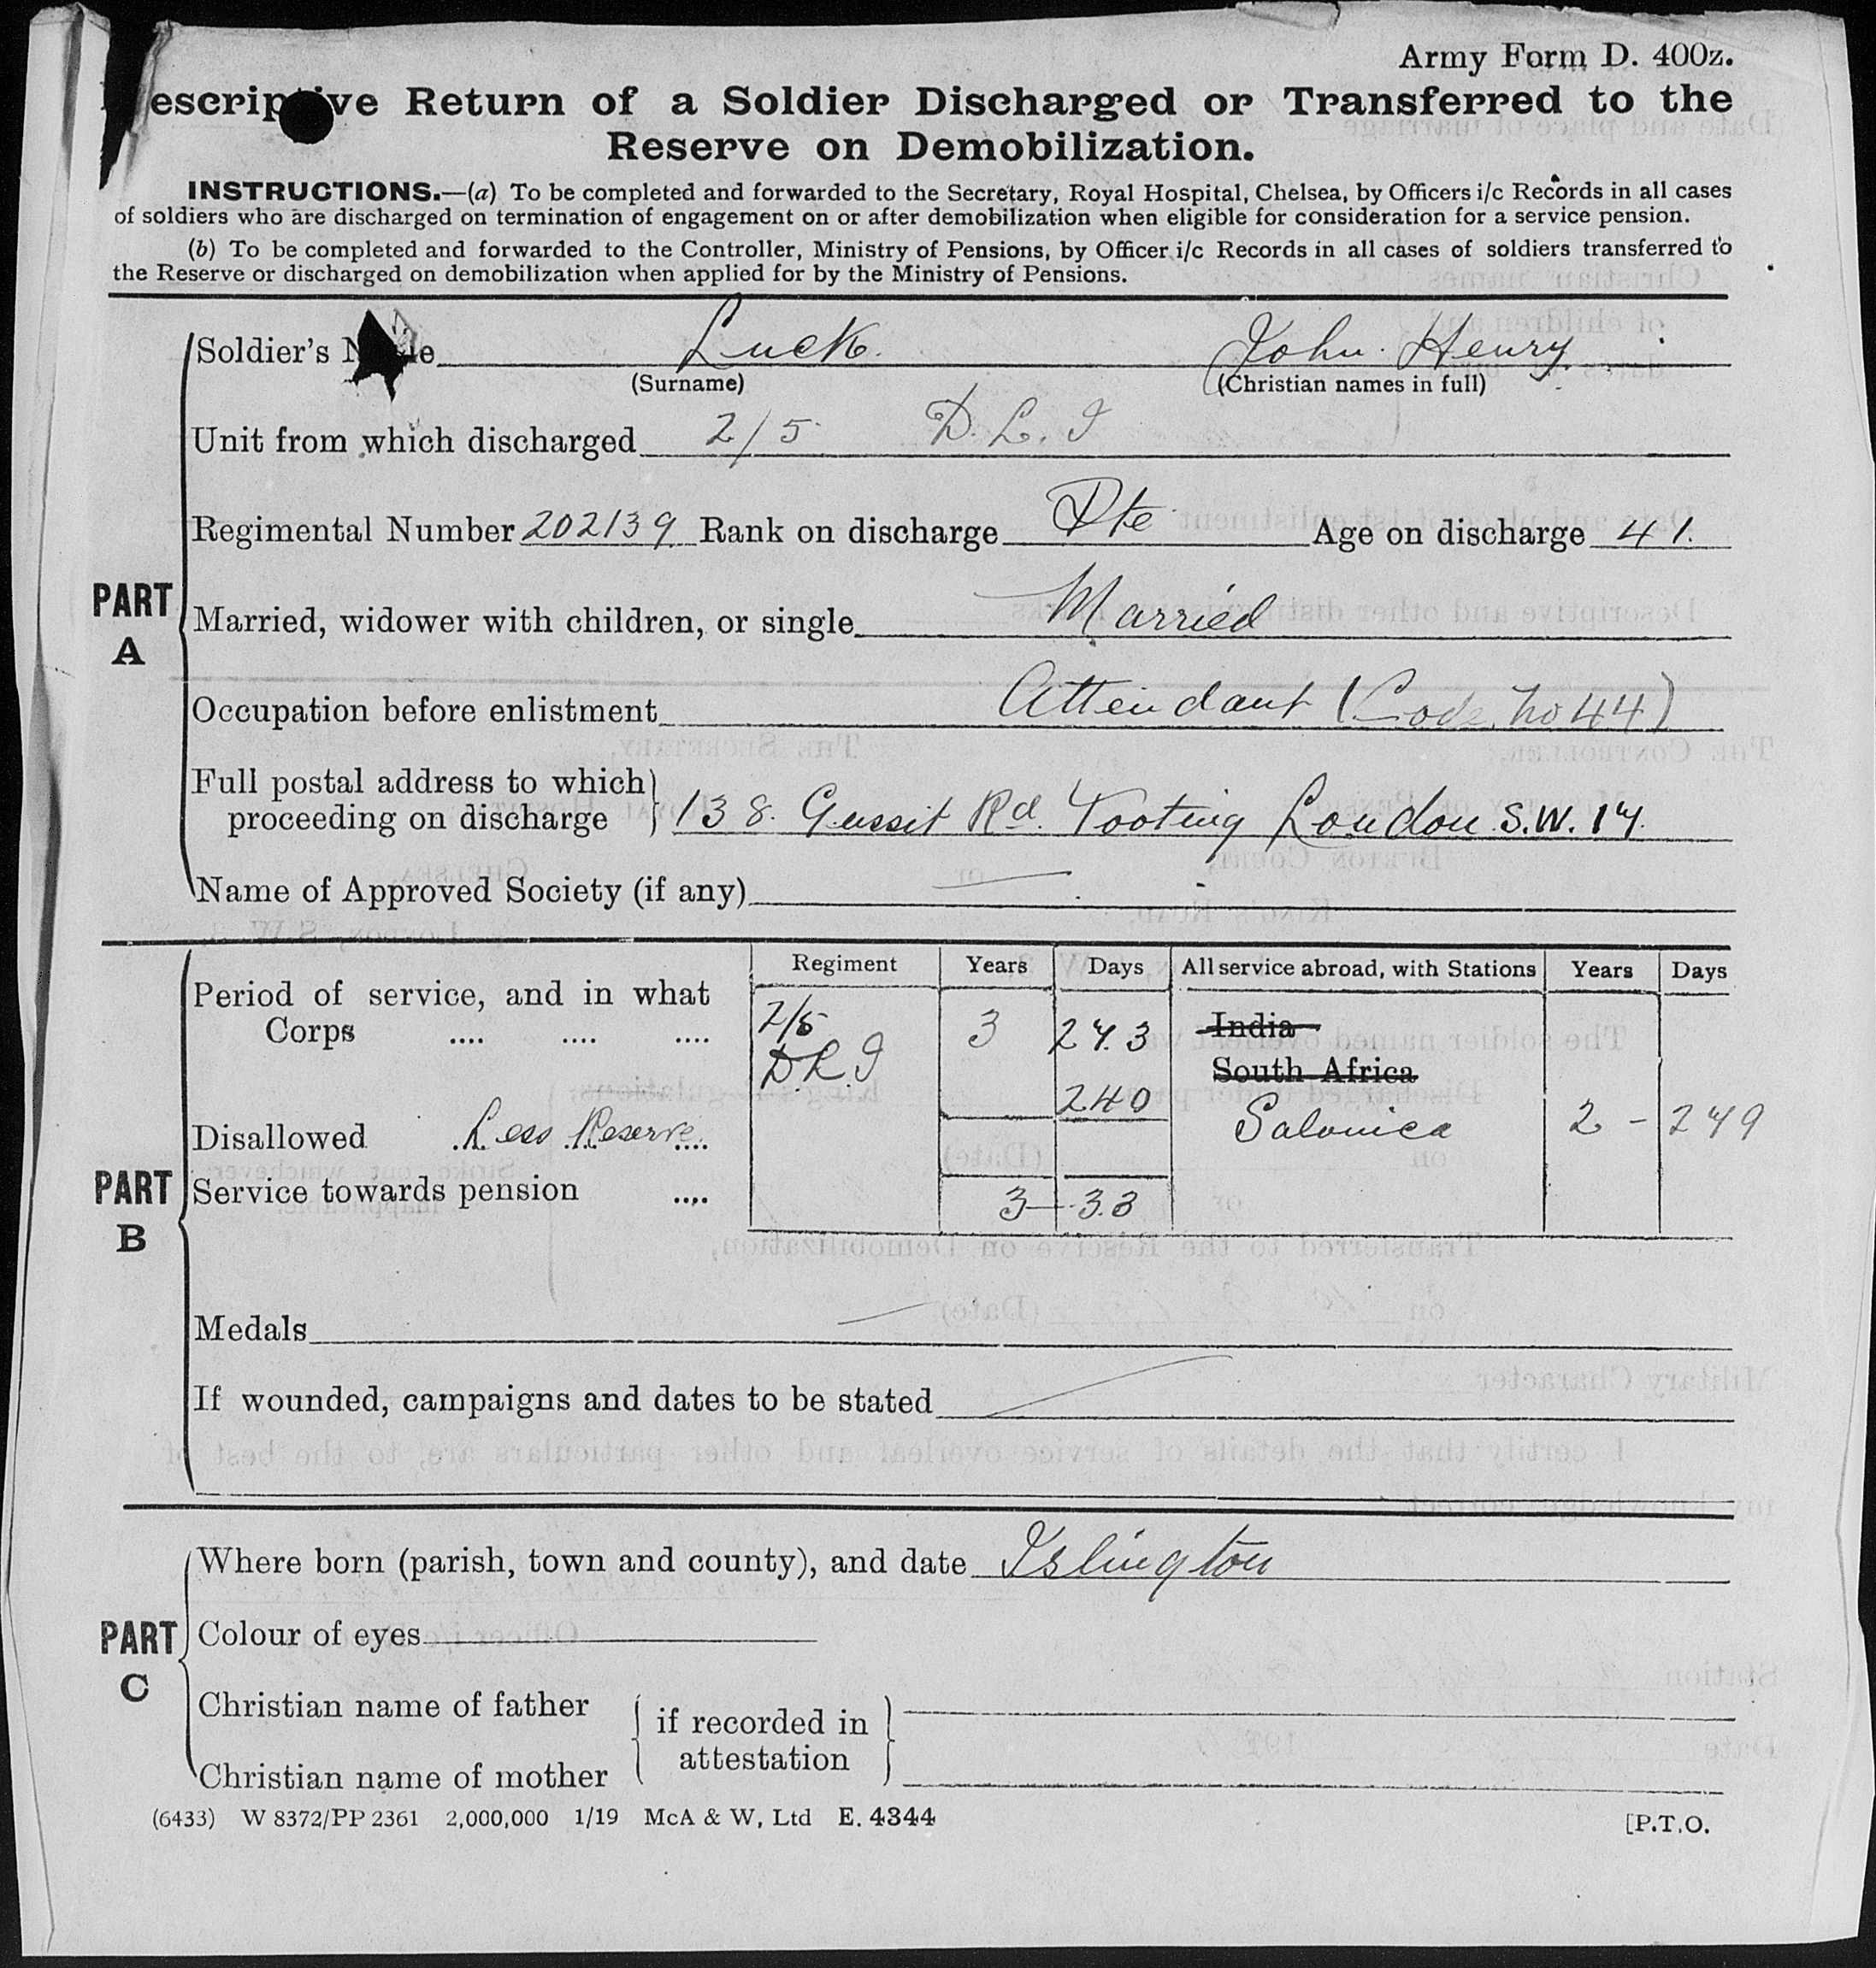 Army Form D. 400z.
escrip ve Return of a Soldier Discharged or Transferred to the
Reserve on Demobilization.
INSTRUCTIONS.—(a) To be completed and forwarded to the Secretary, Royal Hospital, Chelsea, by Officers i/c Records in all cases
of soldiers who are discharged on termination of engagement on or after demobilization when eligible for consideration for a service pension.
(b) To be completed and forwarded to the Controller, Ministry of Pensions, by Officer i/c Records in all cases of soldiers transferred to
the Reserve or discharged on demobilization when applied for by the Ministry of Pensions.
PART A
Soldier's N e Luck. John Henry
(Surname) (Christian names in full)
Unit from which discharged 2/5 D.L.I
Regimental Number 202139 Rank on discharge Pte Age on discharge 41.
Married, widower with children, or single Married
Occupation before enlistment Attendant (Code No 44)
Full postal address to which
proceeding on discharge 138. Gassit Rd. Tooting London S.W. 17.
Name of Approved Society (if any) —
PART B
Regiment Years Days All service abroad, with Stations Years Days
Period of service, and in what
Corps .... .... .... 2/5 3 273 India
D.L.I South Africa
240 Salonica 2 - 249
Disallowed .... Less Reserve ....
Service towards pension .... 3 - 33
Medals —
If wounded, campaigns and dates to be stated
PART C
Where born (parish, town and county), and date Islington
Colour of eyes
Christian name of father
if recorded in
attestation
Christian name of mother
(6433) W 8372/PP 2361 2,000,000 1/19 McA & W, Ltd E. 4344
[P.T.O.